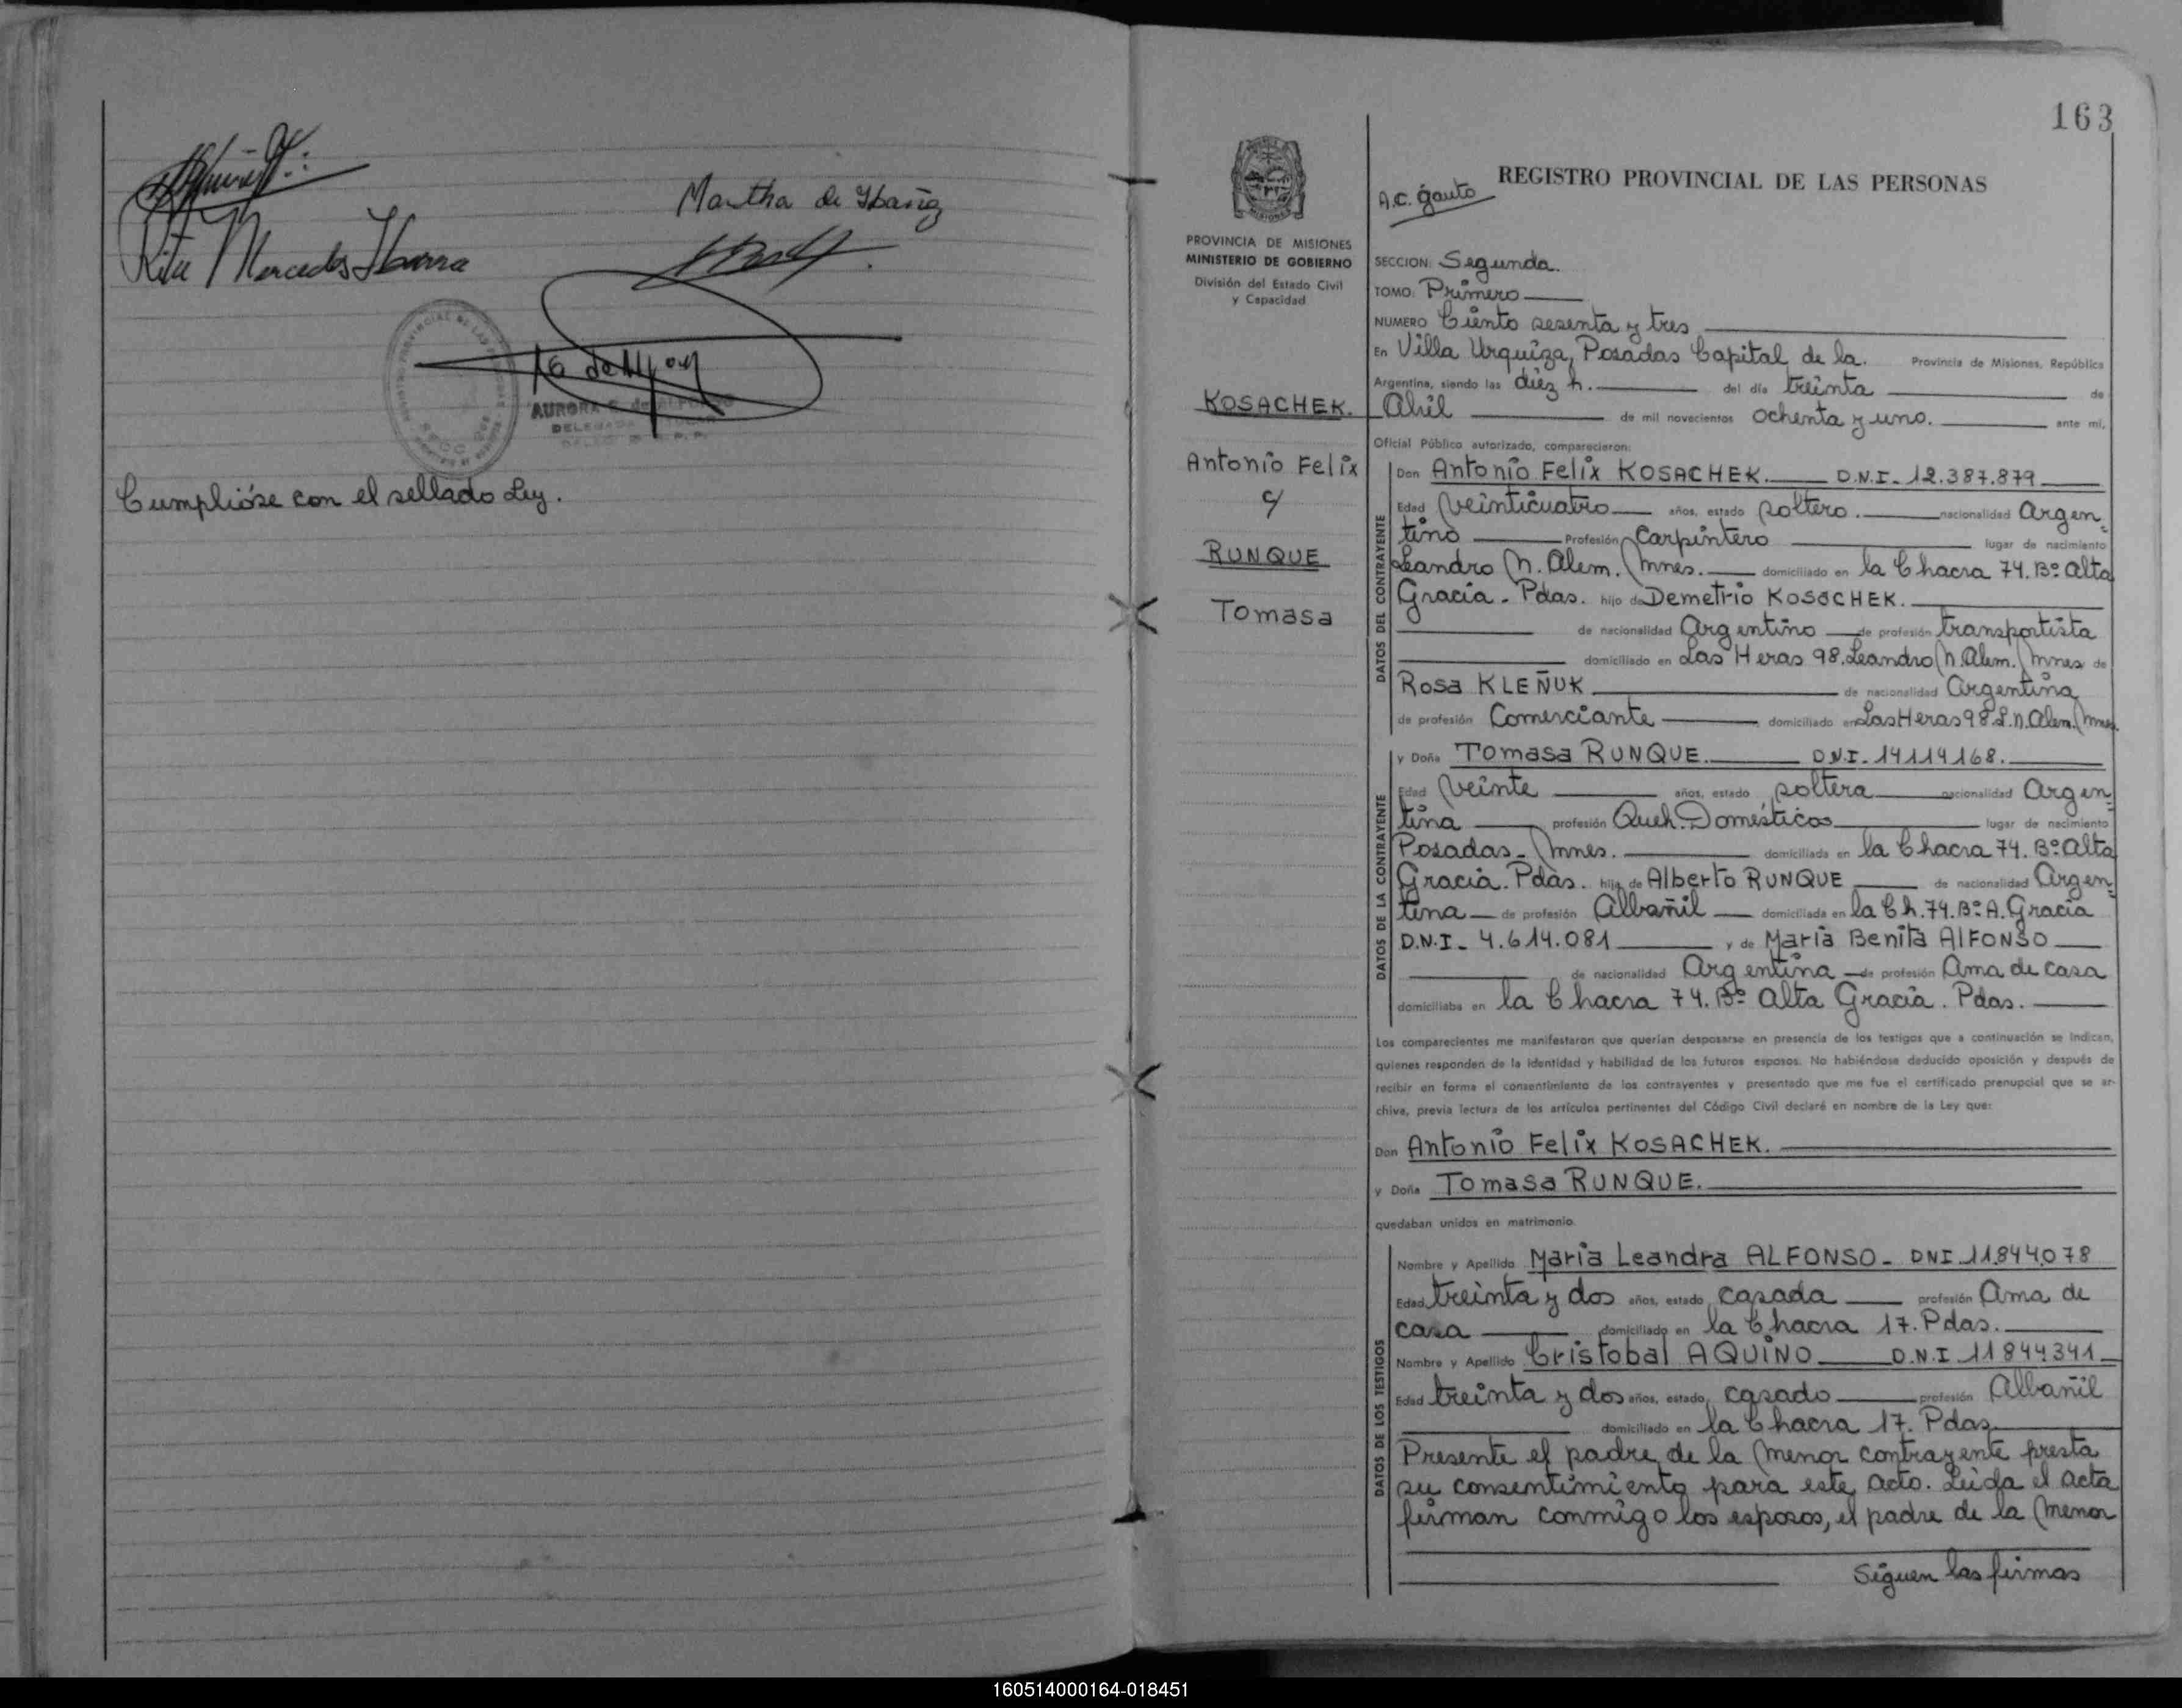 Rita Mercedes Ibarra
Martha de Ibañez
AURORA E. de ALFONSO
DELEGADA TITULAR
Cumplióse con el sellado Ley.
163
REGISTRO PROVINCIAL DE LAS PERSONAS
A.C. gauto
PROVINCIA DE MISIONES
MINISTERIO DE GOBIERNO
División del Estado Civil
y Capacidad
KOSACHEK.
Antonio Felix
c/
RUNQUE
Tomasa
SECCION: Segunda.
TOMO: Primero
NUMERO Ciento sesenta y tres
En Villa Urquiza, Posadas Capital de la. Provincia de Misiones, República
Argentina, siendo las diez h. del día treinta de
Abril de mil novecientos ochenta y uno. ante mí,
Oficial Público autorizado, comparecieron:
DATOS DEL CONTRAYENTE
Don Antonio Felix KOSACHEK. D.N.I. 12.387.879
Edad veinticuatro años, estado soltero. nacionalidad Argen=
tino Profesión Carpintero lugar de nacimiento
Leandro N. Alem. Mnes. domiciliado en la Chacra 74. Bº Alta
Gracia - Pdas. hijo de Demetrio KOSOCHEK.
de nacionalidad Argentino de profesión transportista
domiciliado en Las Heras 98. Leandro N. Alem. Mnes de
Rosa KLEÑUK de nacionalidad Argentina
de profesión Comerciante domiciliado en Las Heras 98 L.N. Alem. Mnes.
DATOS DE LA CONTRAYENTE
y Doña Tomasa RUNQUE. D.N.I. 14114168.
Edad veinte años, estado soltera nacionalidad Argen=
tina profesión Queh. Domésticos lugar de nacimiento
Posadas - Mnes. domiciliada en la Chacra 74. Bº Alta
Gracia. Pdas. hija de Alberto RUNQUE de nacionalidad Argen=
tina de profesión Albañil domiciliada en la Ch. 74. Bº A. Gracia
D.N.I. 4.614.081 y de Maria Benita AlFONSO
de nacionalidad Argentina de profesión Ama de casa
domiciliaba en la Chacra 74. Bº Alta Gracia. Pdas.
Los comparecientes me manifestaron que querían desposarse en presencia de los testigos que a continuación se indican,
quienes responden de la identidad y habilidad de los futuros esposos. No habiéndose deducido oposición y después de
recibir en forma el consentimiento de los contrayentes y presentado que me fue el certificado prenupcial que se ar-
chiva, previa lectura de los artículos pertinentes del Código Civil declaré en nombre de la Ley que:
Don Antonio Felix KOSACHEK.
y Doña Tomasa RUNQUE.
quedaban unidos en matrimonio
DATOS DE LOS TESTIGOS
Nombre y Apellido Maria Leandra ALFONSO - DNI 11.844.078
Edad treinta y dos años, estado casada profesión Ama de
casa domiciliado en la Chacra 17. Pdas.
Nombre y Apellido Cristobal AQUINO D.N.I 11844341
Edad treinta y dos años, estado casado profesión Albañil
domiciliado en la Chacra 17. Pdas
Presente el padre de la menor contrayente presta
su consentimiento para este acto. Leida el acta
firman conmigo los esposos, el padre de la menor
Siguen las firmas
160514000164-018451